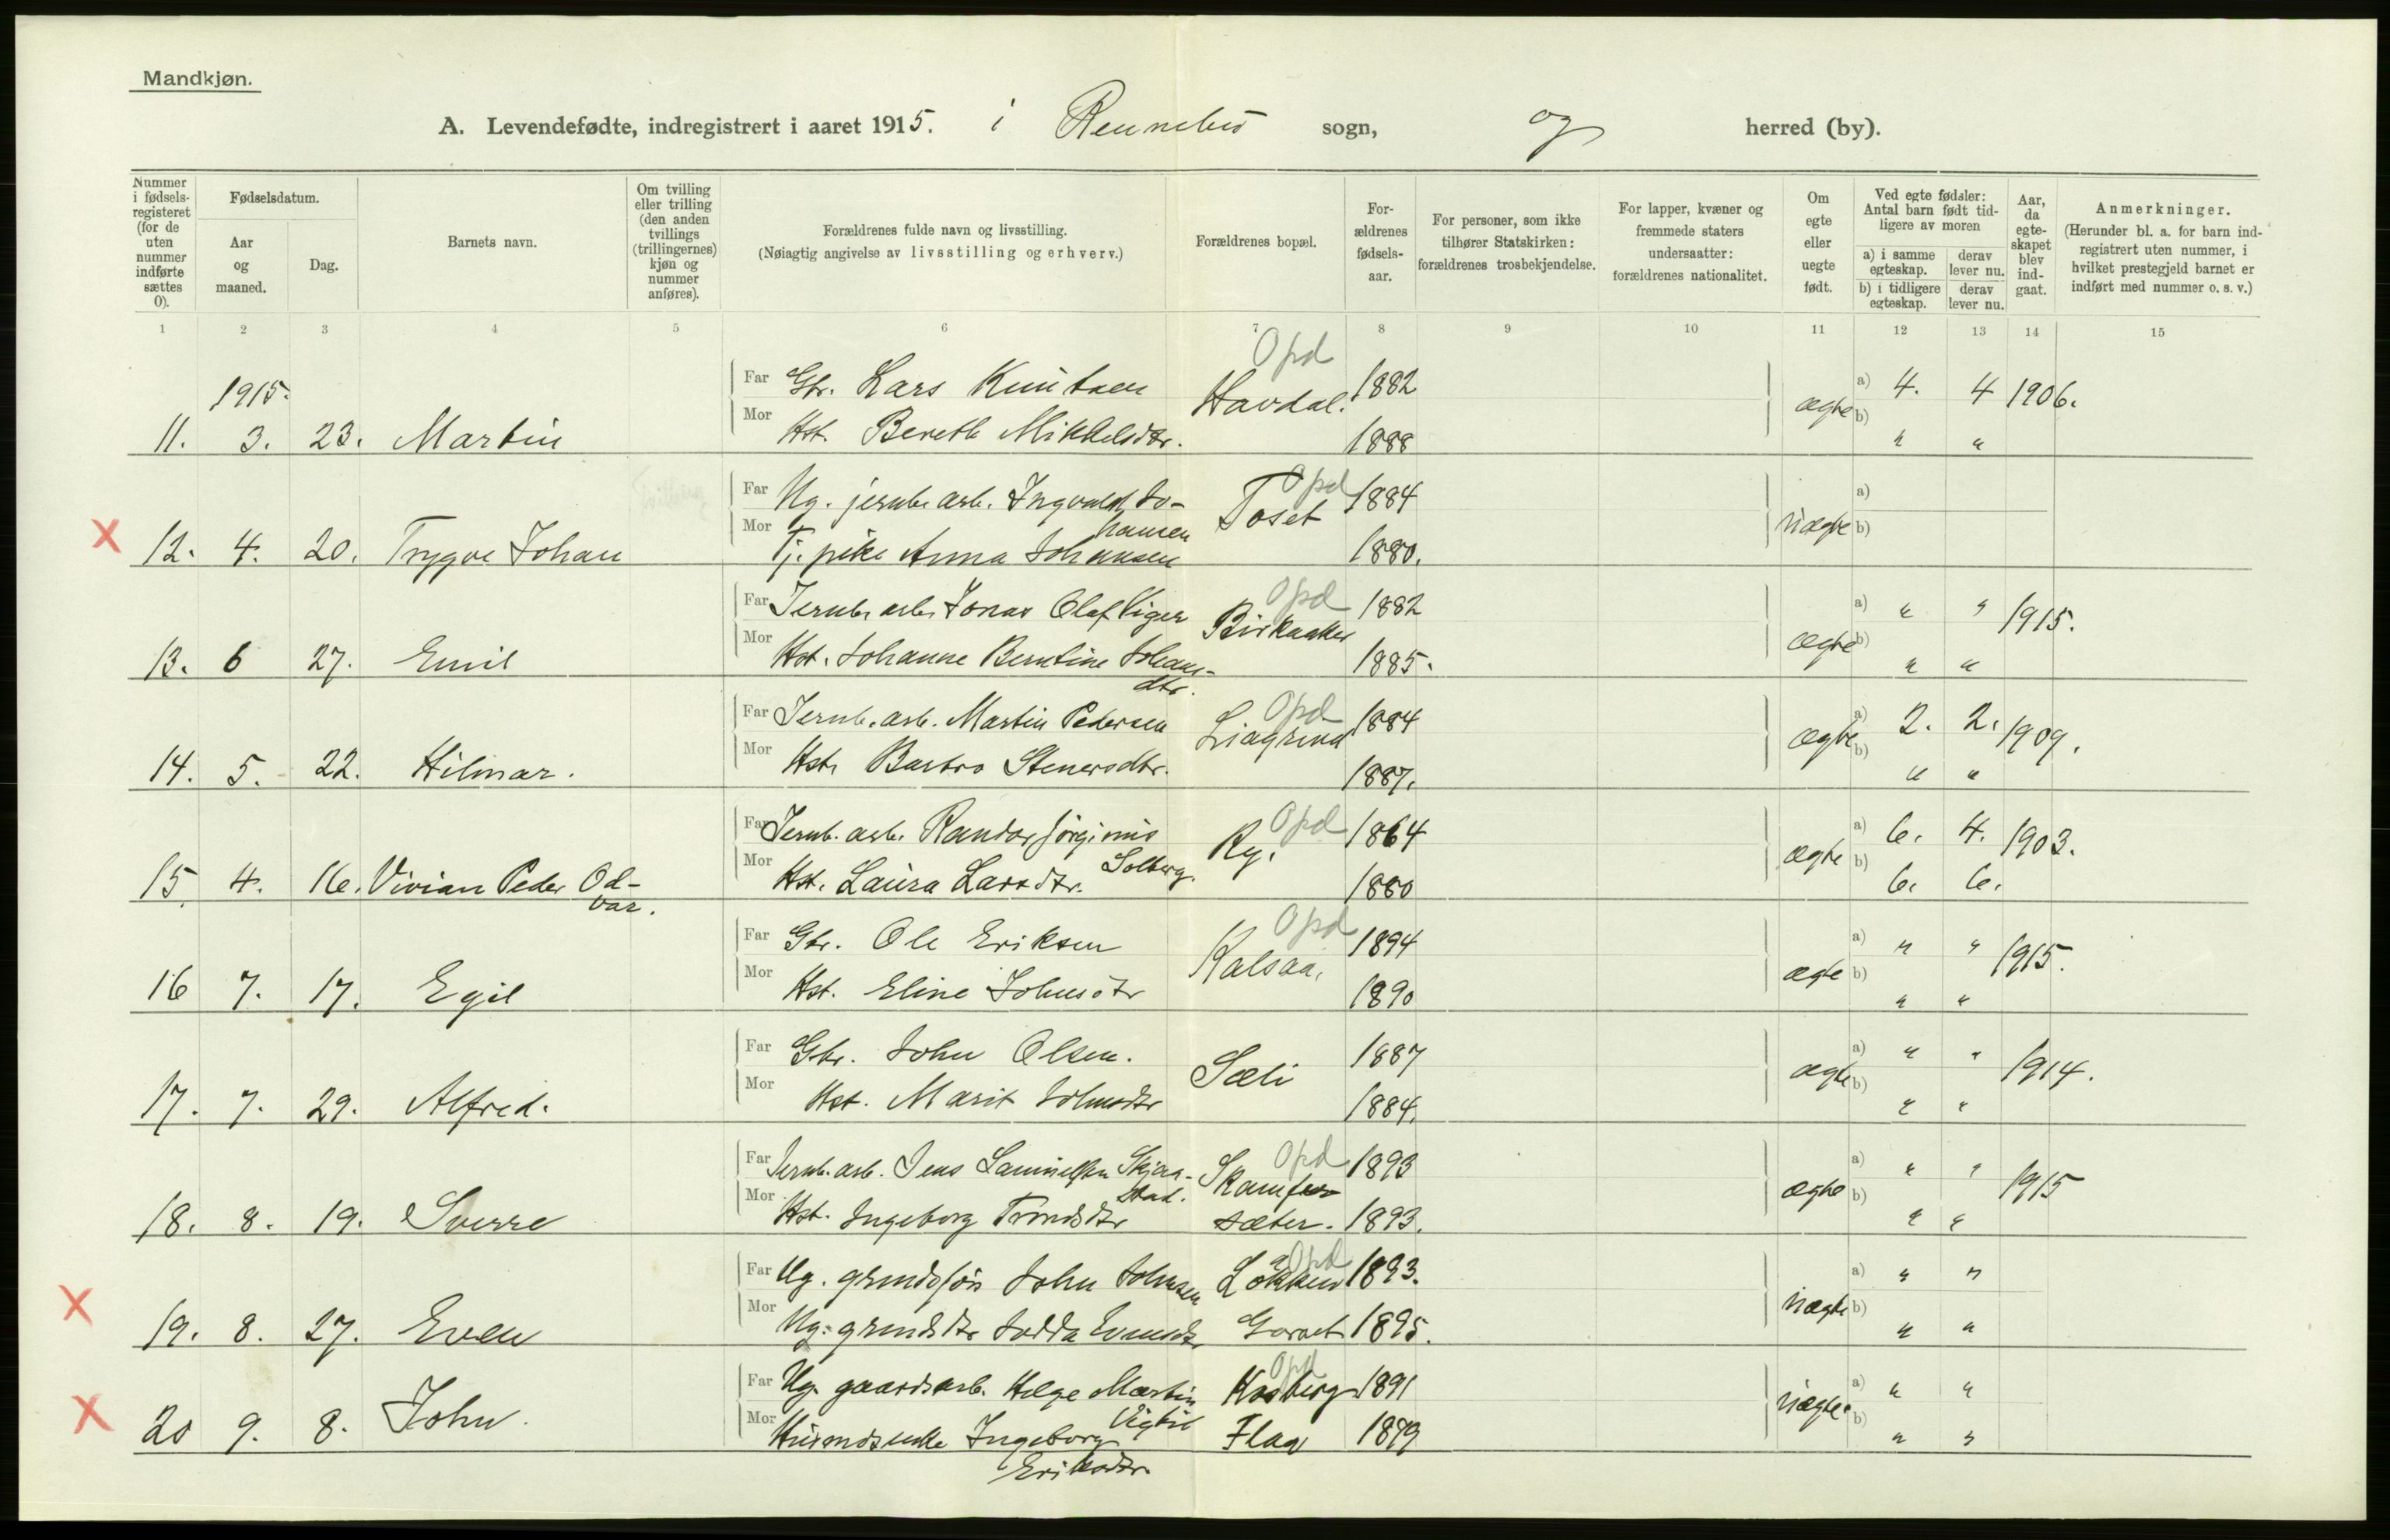 Mandkjøn.
A. Levendefødte, indregistrert i aaret 1915. i Rennebu sogn, og herred (by).
Nummer i fødsels-registeret (for de uten nummer indførte sættes 0).
Fødselsdatum.
Aar og maaned.
Dag.
Barnets navn.
Om tvilling eller trilling (den anden tvillings (trillingernes) kjøn og nummer anføres).
Forældrenes fulde navn og livsstilling.
(Nøiagtig angivelse av livsstilling og erhverv.)
Forældrenes bopæl.
For-ældrenes fødsels-aar.
For personer, som ikke tilhører Statskirken: forældrenes trosbekjendelse.
For lapper, kvæner og fremmede staters undersaatter: forældrenes nationalitet.
Om egte eller uegte født.
Ved egte fødsler: Antal barn født tid-ligere av moren
a) i samme egteskap. derav lever nu.
b) i tidligere egteskap. derav lever nu.
Aar, da egte-skapet blev ind-gaat.
Anmerkninger.
(Herunder bl. a. for barn ind-registrert uten nummer, i hvilket prestegjeld barnet er indført med nummer o. s. v.)
1 2 3 4 5 6 7 8 9 10 11 12 13 14 15
1915. Far Gbr. Lars Knutsen Opd Havdal. 1882 a) 4. 4 1906.
11. 3. 23. Martin Mor Hst. Bereth Mikkelsdtr. 1888 ægte b) " "
Far Ug. jernb. arb. Ingvald Jo-hansen Opd Toset 1884 a)
X 12. 4. 20. Trygve Johan Mor Tj. pike Anna Johansen 1880. uægte b)
Far Jernb. arb. Jonas Olaf Viger Opd Birkaaker 1882 a) " " 1915.
13. 6 27. Emil Mor Hst. Johanne Berntine Johans-dtr. 1885. ægte b) " "
Far Jernb. arb. Martin Pedersen Opd Liagrend 1884 a) 2. 2. 1909.
14. 5. 22. Hilmar. Mor Hst. Barbro Stenersdtr. 1887. ægte b) " "
Far Jernb. arb. Randor Jørginus Solberg. Opd Ry. 1864 a) 6. 4. 1903.
15. 4. 16. Vivian Peder Od-var. Mor Hst. Laura Larsdtr. 1880 ægte b) 6. 6.
Far Gbr. Ole Eriksen Opd Kalsaa. 1894 a) " " 1915.
16 7. 17. Egil Mor Hst. Eline Johnsdtr 1890 ægte b) " "
Far Gbr. John Olsen. Sæli 1887 a) " " 1914.
17. 7. 29. Alfred. Mor Hst. Marit Johnsdtr 1884. ægte b) " "
Far Jernb. arb. Jens Samuelsen Skjaa-stad. Opd Skamfer 1893 a) " " 1915
18. 8. 19. Sverre Mor Hst. Ingeborg Trondsdtr sæter. 1893. ægte b) " "
Far Ug. grmdssøn John Johnsen Opd Løkken 1893. a) " "
X 19. 8. 27. Even Mor Ug. grmdsdtr Jodda Evensdtr Gorset 1895. uægte b) " "
Far Ug. gaardsarb. Helge Martin Vigtil Opd Kosberg 1891 a) " "
X 20 9. 8. John. Mor Husmdsenke Ingeborg Flaa 1879 uægte. b) " "
Eriksdtr.